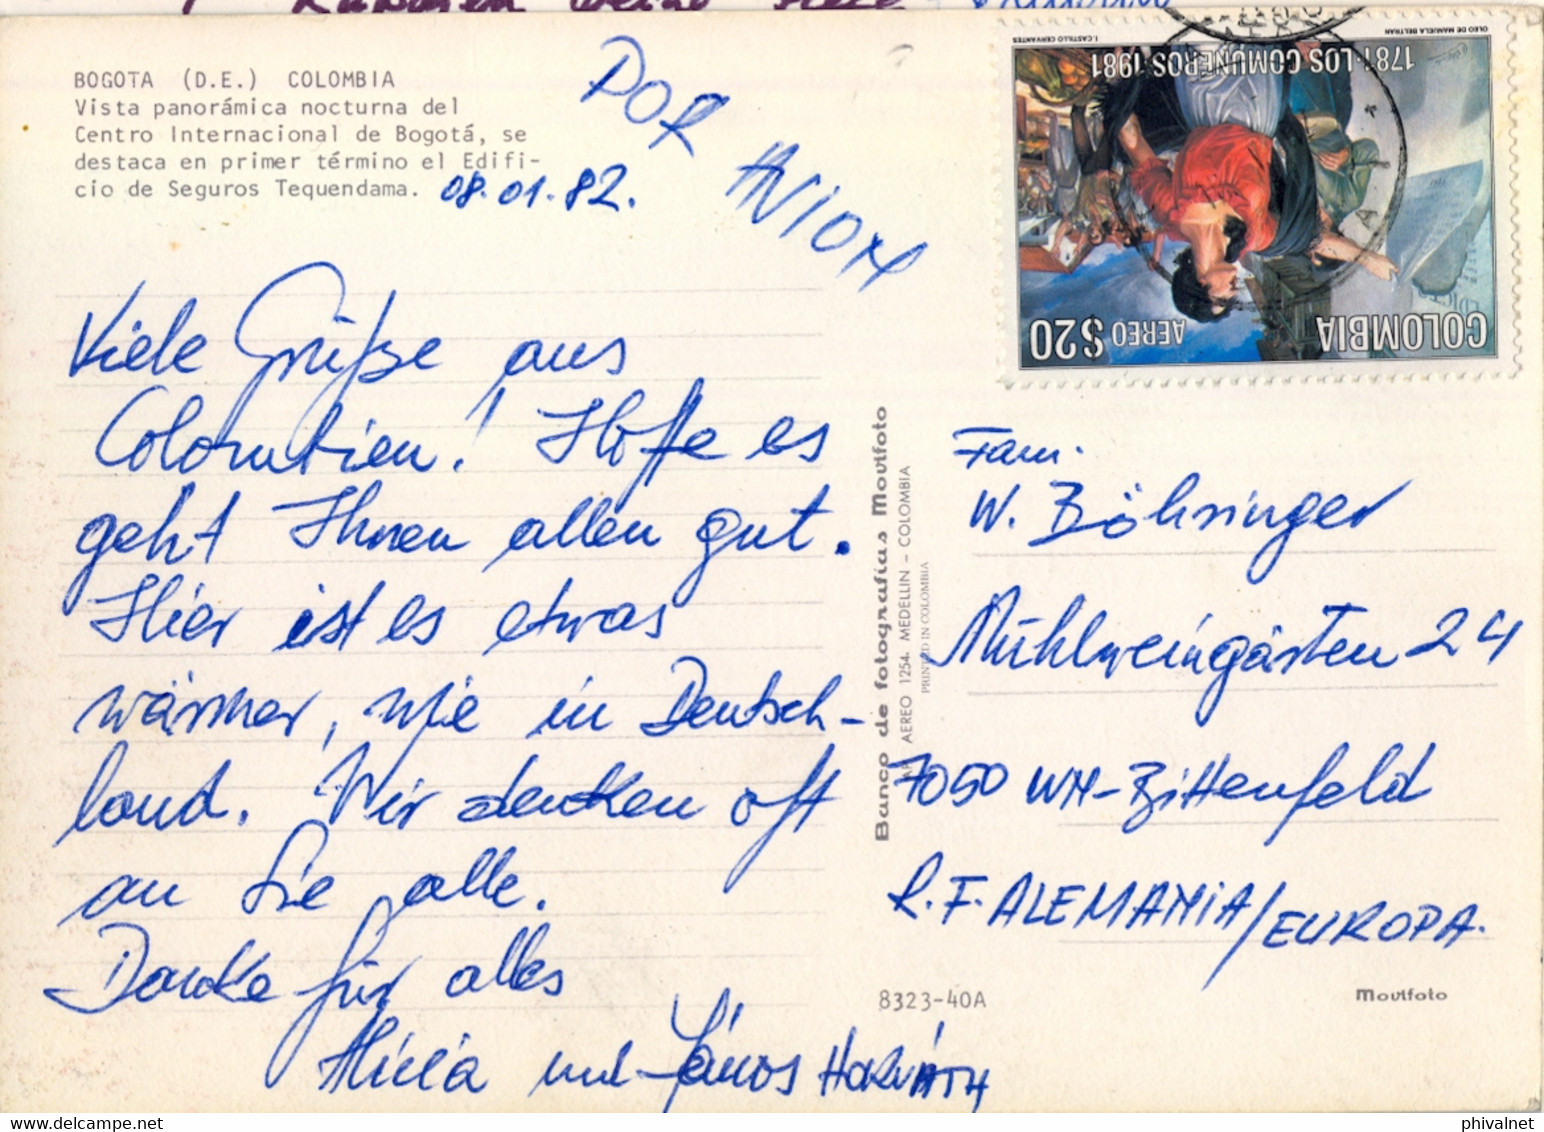 BOGOTA (D.E.) COLOMBIA
Vista panorámica nocturna del
Centro Internacional de Bogotá, se
destaca en primer término el Edifi-
cio de Seguros Tequendama.
08.01.82.
POR
AVION
Viele Grüße aus
Colombien! Hoffe es
geht Ihnen allen gut.
Hier ist es etwas
wärmer, wie in Deutsch-
land. Wir denken oft
an Sie alle.
Danke für alles
Alicia und János HORVÁTH
Banco de fotografías Movifoto
AEREO 1254. MEDELLIN - COLOMBIA
PRINTED IN COLOMBIA
OLEO DE MANUELA BELTRAN
I. CASTILLO CERVANTES
1781-LOS COMUNEROS 1981
COLOMBIA
AEREO $20
Fam.
W. Böhringer
Mühlweingärten 24
7050 WN-Bittenfeld
R.F. ALEMANIA/EUROPA.
8323-40A
Movifoto
delcampe.net
phivalnet